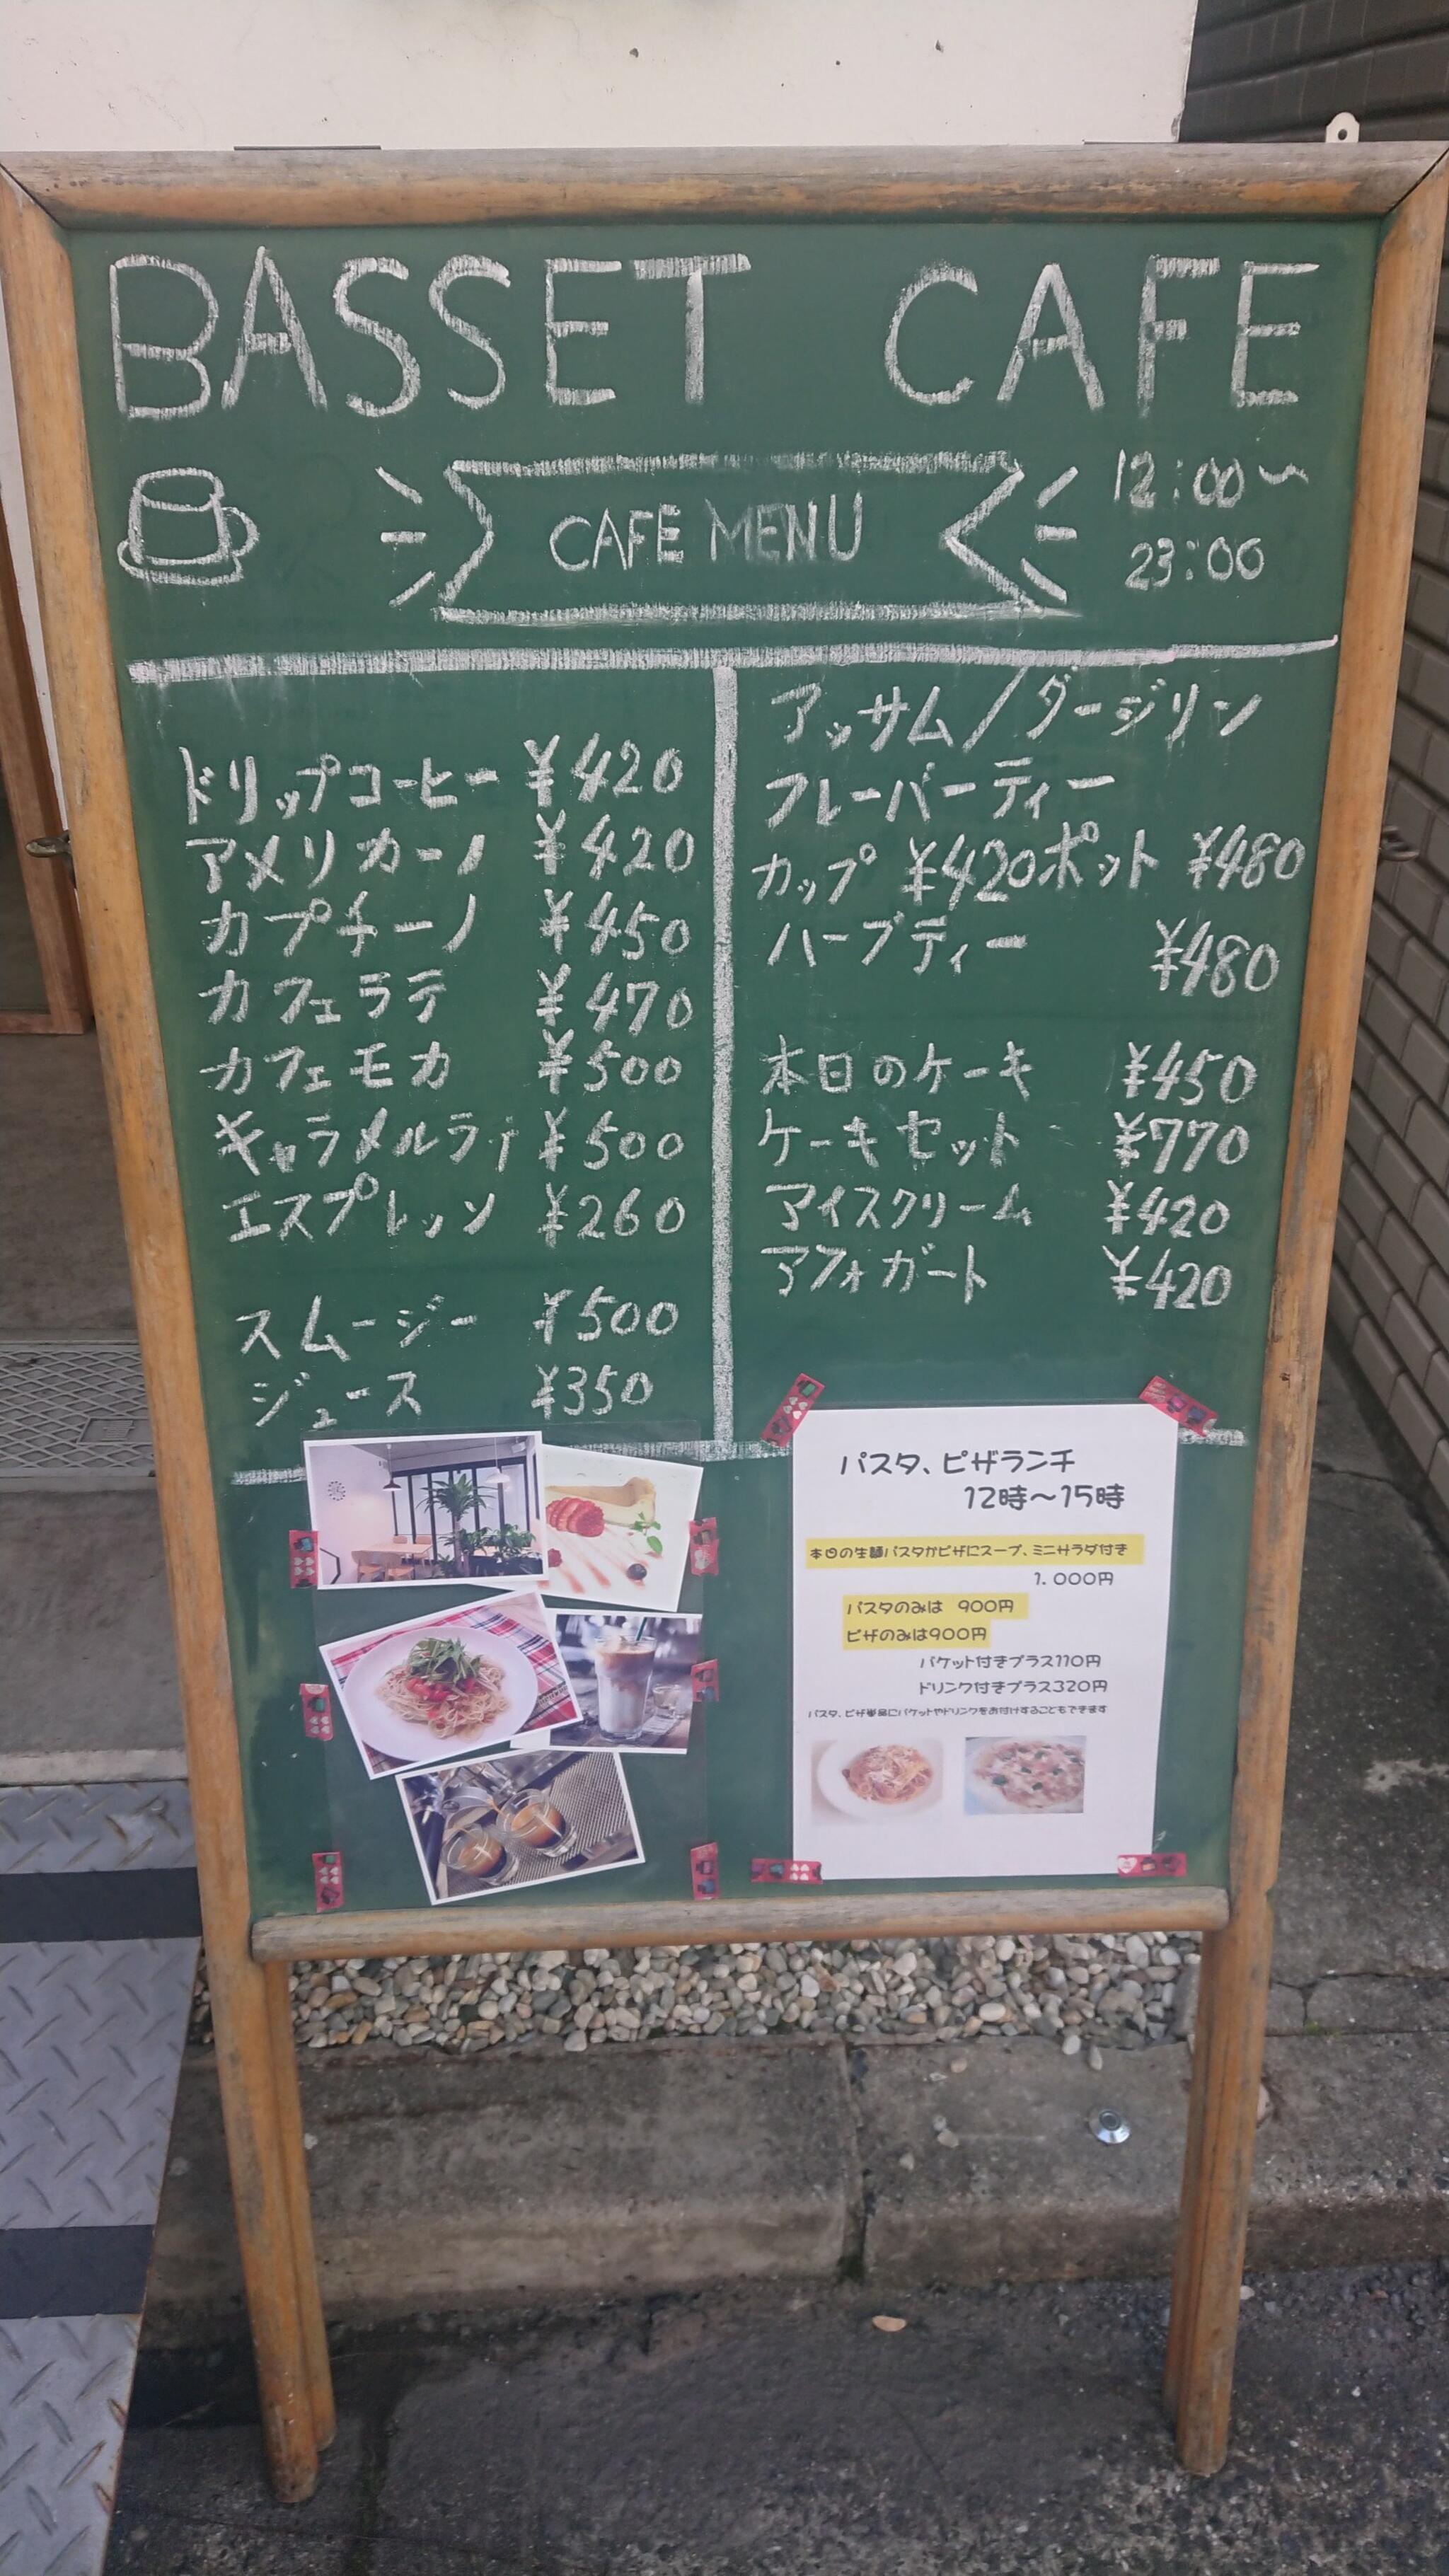 BASSET CAFE
CAFE MENU
12:00〜
23:00
ドリップコーヒー ¥420
アメリカーノ ¥420
カプチーノ ¥450
カフェラテ ¥470
カフェモカ ¥500
キャラメルラテ ¥500
エスプレッソ ¥260
スムージー ¥500
ジュース ¥350
アッサム/ダージリン
フレーバーティー
カップ ¥420 ポット ¥480
ハーブティー ¥480
本日のケーキ ¥450
ケーキセット ¥770
アイスクリーム ¥420
アフォガート ¥420
パスタ、ピザランチ
12時〜15時
本日の生麺パスタかピザにスープ、ミニサラダ付き
1.000円
パスタのみは 900円
ピザのみは900円
バケット付きプラス110円
ドリンク付きプラス320円
パスタ、ピザ単品にバケットやドリンクをお付けすることもできます